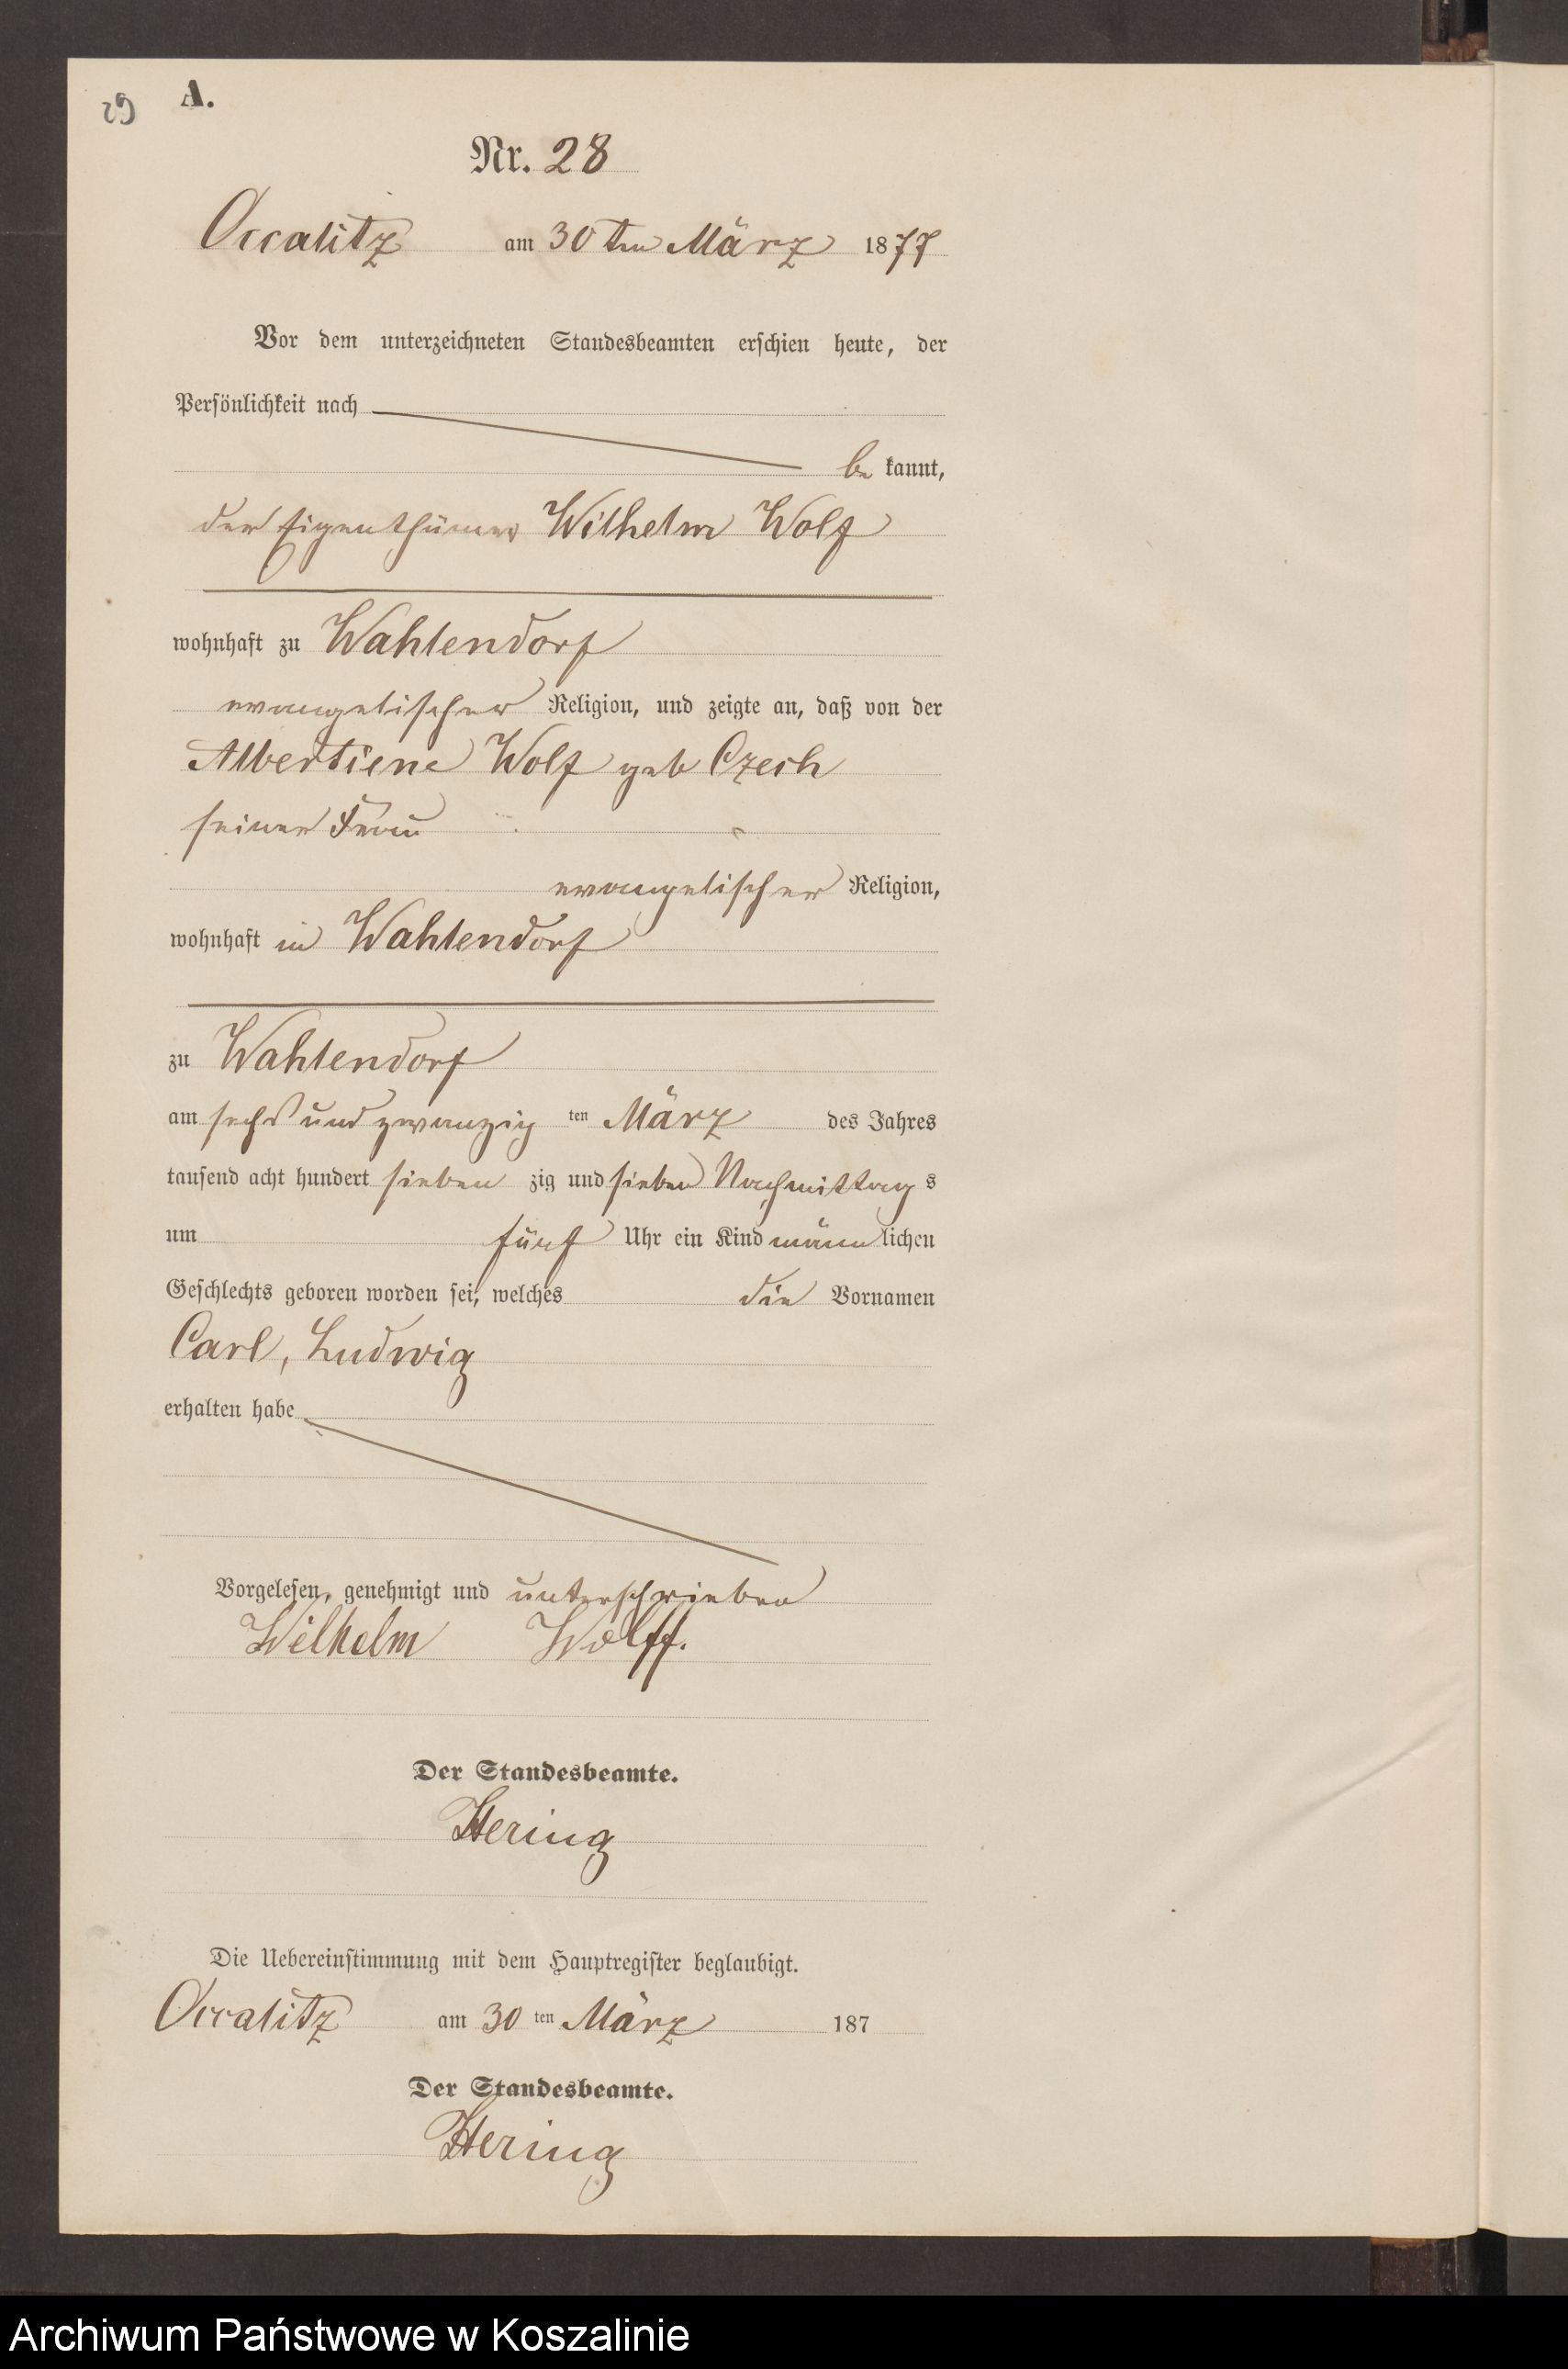 29 A.
Nr. 28
Occalitz am 30ten März 1877
Vor dem unterzeichneten Standesbeamten erschien heute, der
Persönlichkeit nach
be kannt,
der Eigenthümer Wilhelm Wolf
wohnhaft zu Wahlendorf
evangelischer Religion, und zeigte an, daß von der
Albertiene Wolf geb Czech
seiner Frau
evangelischer Religion,
wohnhaft in Wahlendorf
zu Wahlendorf
am sechs und zwanzig ten März des Jahres
tausend acht hundert sieben zig und sieben Nachmittag s
um fünf Uhr ein Kind männ lichen
Geschlechts geboren worden sei, welches die Vornamen
Carl, Ludwig
erhalten habe
Vorgelesen, genehmigt und unterschrieben
Wilhelm Wolff.
Der Standesbeamte.
Hering
Die Uebereinstimmung mit dem Hauptregister beglaubigt.
Occalitz am 30 ten März 187
Der Standesbeamte.
Hering
Archiwum Państwowe w Koszalinie